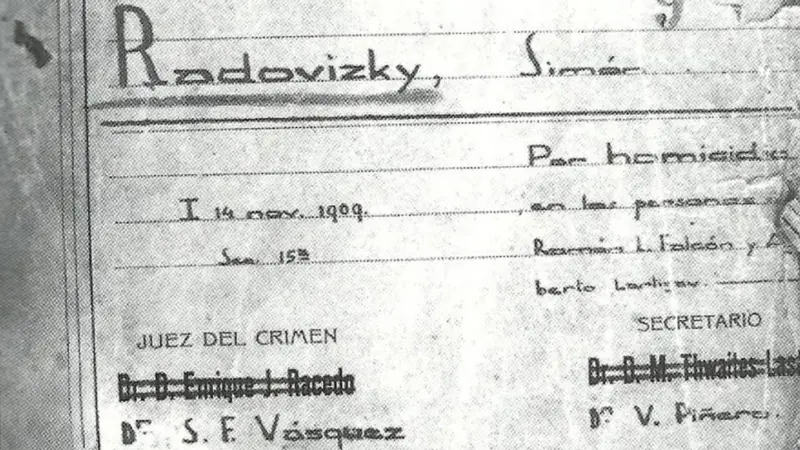 Radovizky, Simón
Por homicidio
I 14 nov. 1909. , en las personas
Sec. 15ª Ramón L. Falcón y A
berto Lartigau.
JUEZ DEL CRIMEN SECRETARIO
Dr. D. Enrique J. Racedo Dr. D. M. Thwaites Las
Dr. S. F. Vásquez Dr. V. Piñero.